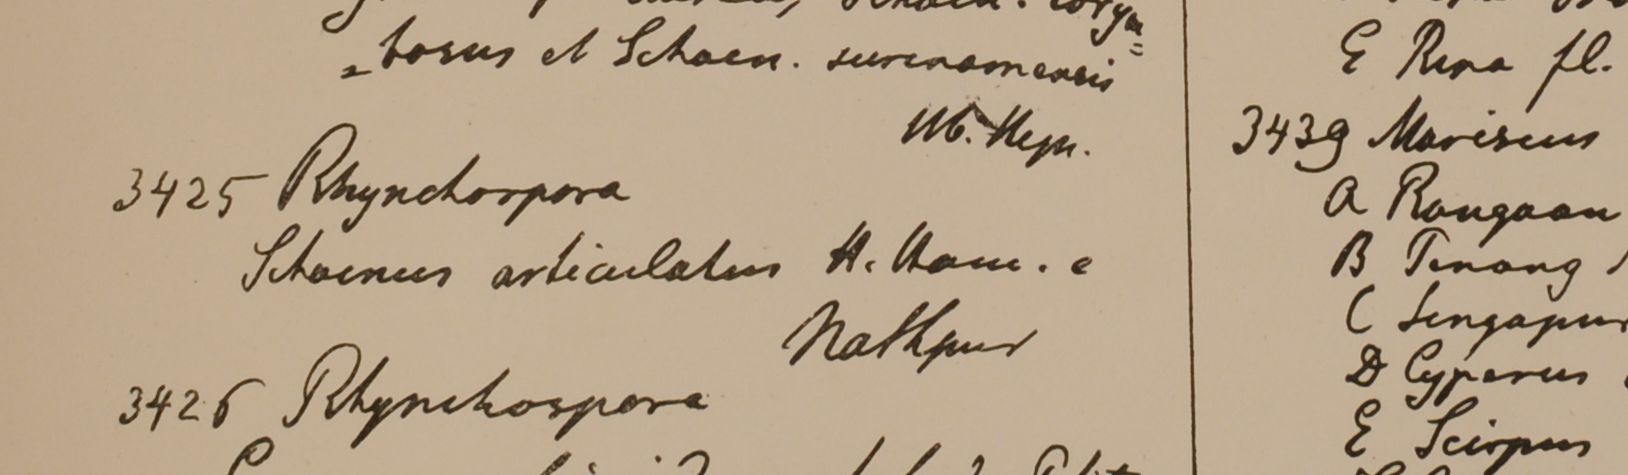 Schoen. corym
=bosus et Schoen. surinamensis
Hb. Heyn.
3425 Rhynchospora
Schoenus articulatus H. Ham. e
Nathpur
3426 Rhynchospora
E Pina fl.
3439 Mariscus
A Rangoon
B Penang
C Singapur
D Cyperus
E Scirpus